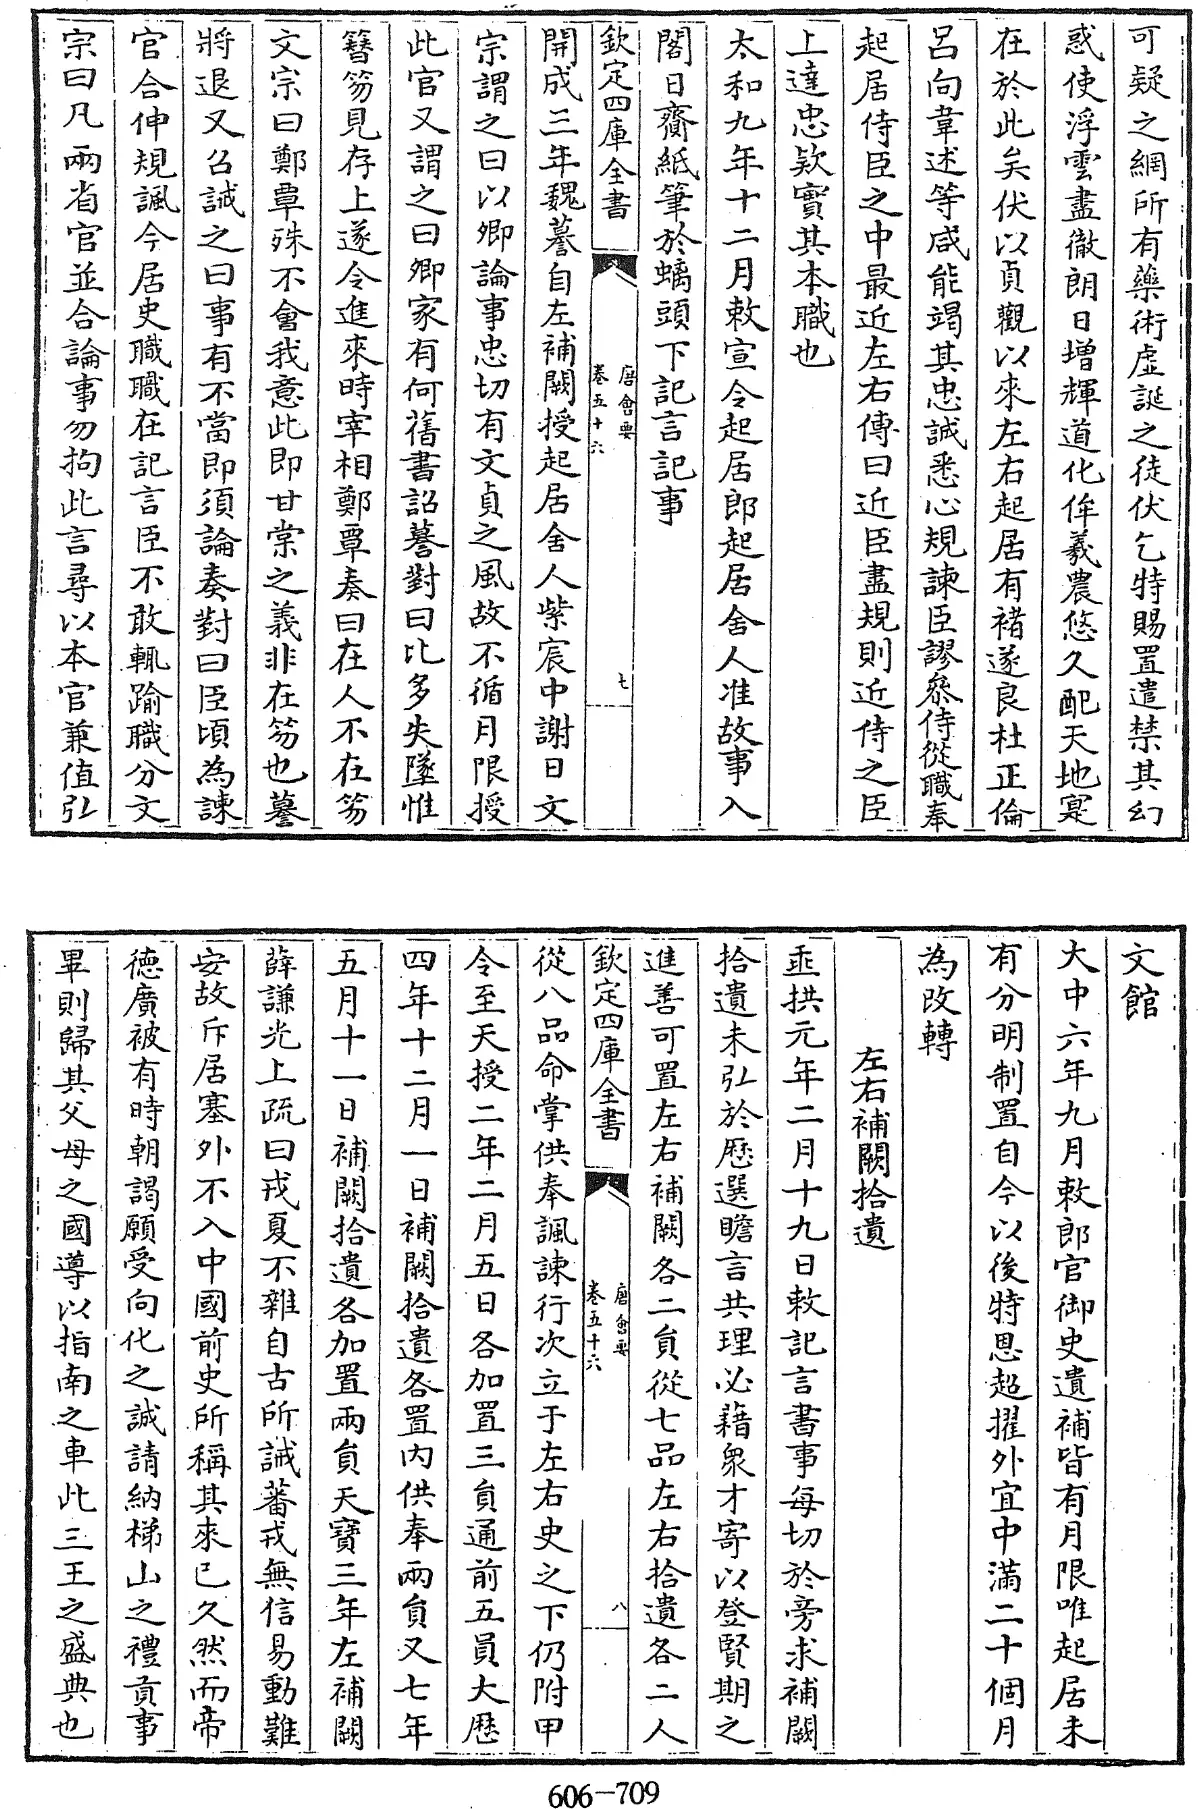 可疑之網所有藥術虛誕之徒伏乞特賜置遣禁其幻
惑使浮雲盡徹朗日增輝道化侔羲農悠久配天地寔
在於此矣伏以貞觀以來左右起居有褚遂良杜正倫
呂向韋述等咸能竭其忠誠悉心規諫臣謬叅侍從職奉
起居侍臣之中最近左右傳曰近臣盡規則近侍之臣
上達忠欵實其本職也
太和九年十二月敕宣令起居郎起居舍人准故事入
閣日齎紙筆於螭頭下記言記事
欽定四庫全書
唐會要
卷五十六
七
開成三年魏謩自左補闕授起居舍人紫宸中謝日文
宗謂之曰以卿論事忠切有文貞之風故不循月限授
此官又謂之曰卿家有何舊書詔謩對曰比多失墜惟
簪笏見存上遂令進來時宰相鄭覃奏曰在人不在笏
文宗曰鄭覃殊不會我意此即甘棠之義非在笏也謩
將退又召誡之曰事有不當即須論奏對曰臣頃為諫
官合伸規諷今居史職職在記言臣不敢輒踰職分文
宗曰凡兩省官並合論事勿拘此言尋以本官兼值弘
文館
大中六年九月敕郎官御史遺補皆有月限唯起居未
有分明制置自今以後特恩超擢外宜中滿二十個月
為改轉
左右補闕拾遺
垂拱元年二月十九日敕記言書事每切於旁求補闕
拾遺未弘於歷選瞻言共理必藉衆才寄以登賢期之
進善可置左右補闕各二員從七品左右拾遺各二人
欽定四庫全書
唐會要
卷五十六
八
從八品命掌供奉諷諫行次立于左右史之下仍附甲
令至天授二年二月五日各加置三員通前五員大歷
四年十二月一日補闕拾遺各置内供奉兩員又七年
五月十一日補闕拾遺各加置兩員天寶三年左補闕
薛謙光上疏曰戎夏不雜自古所誡蕃戎無信易動難
安故斥居塞外不入中國前史所稱其來已久然而帝
德廣被有時朝謁願受向化之誠請納梯山之禮貢事
畢則歸其父母之國導以指南之車此三王之盛典也
606-709